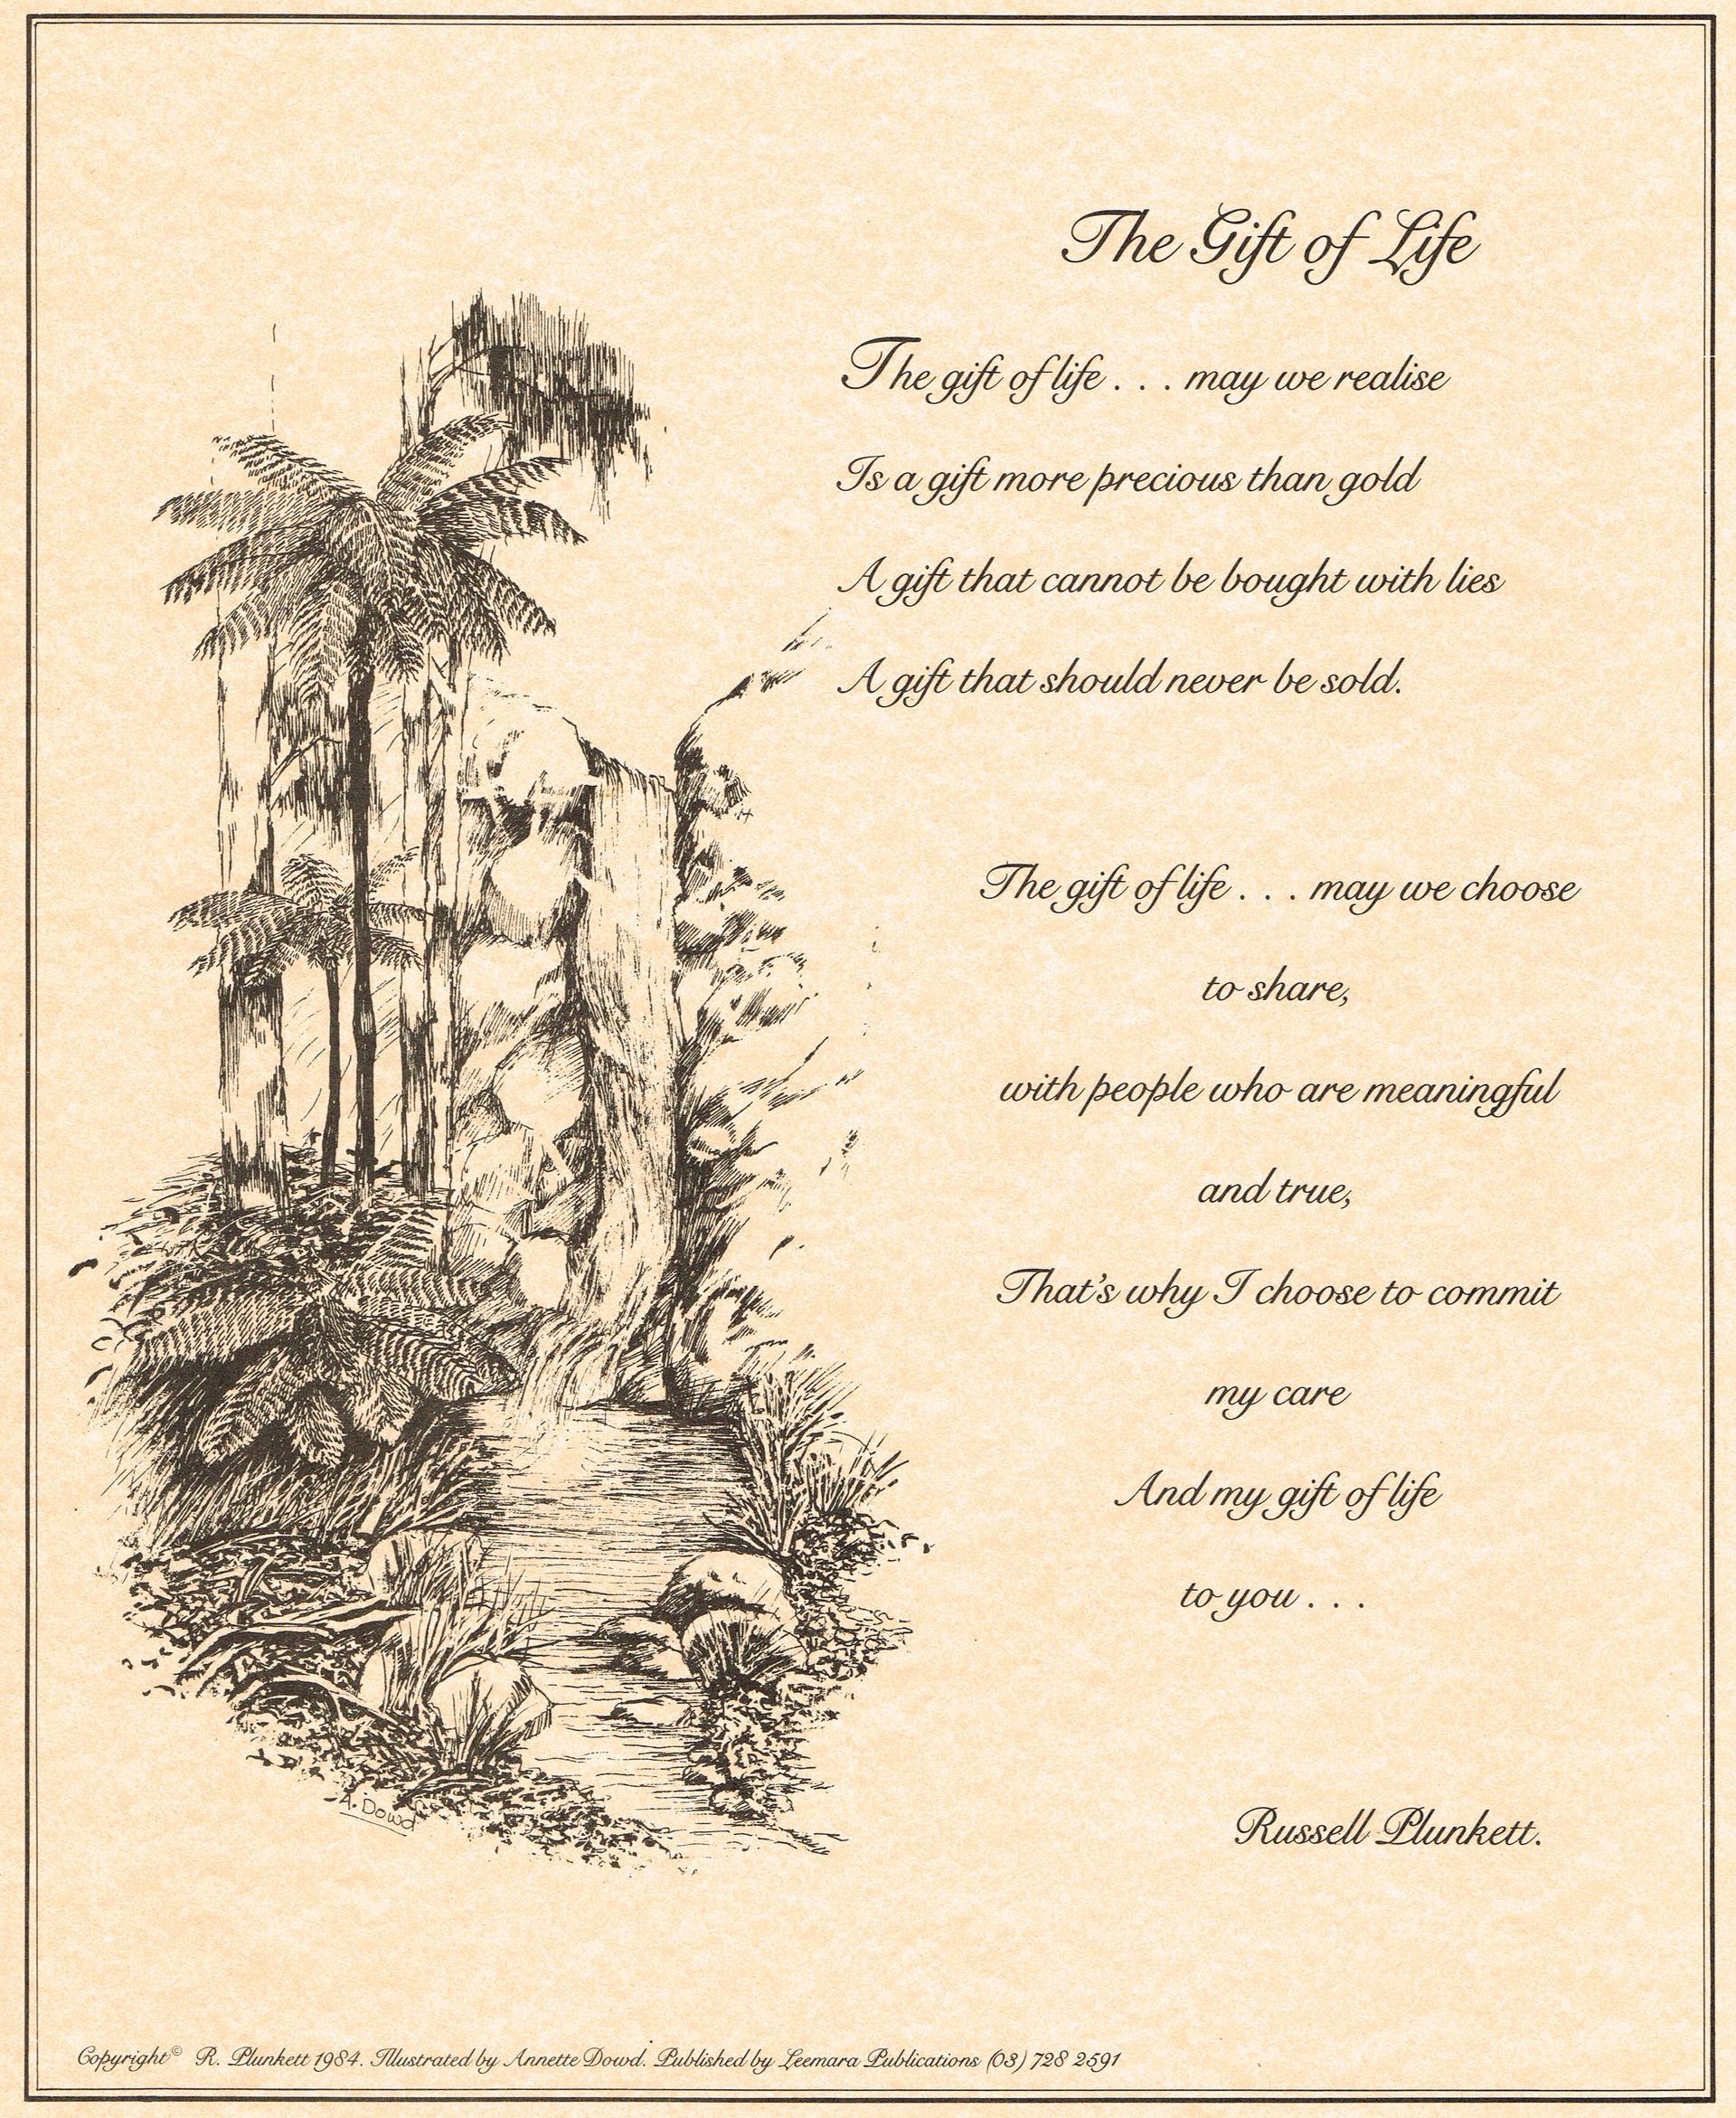 The Gift of Life
The gift of life . . . may we realise
Is a gift more precious than gold
A gift that cannot be bought with lies
A gift that should never be sold.
The gift of life . . . may we choose
to share,
with people who are meaningful
and true,
That's why I choose to commit
my care
And my gift of life
to you . . .
Russell Plunkett.
A. Dowd
Copyright © R. Plunkett 1984. Illustrated by Annette Dowd. Published by Leemara Publications (03) 728 2591